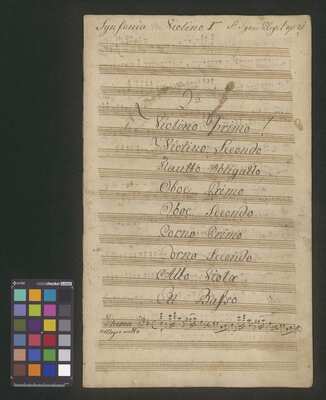 Synfonia Violino I
Da
Violino Primo
Violino Secondo
Flautto Obligatto
Oboe Primo
Oboe Secondo
Corno Primo
Corno Secondo
Alto Viola
Basso
Thema
Allegro molto